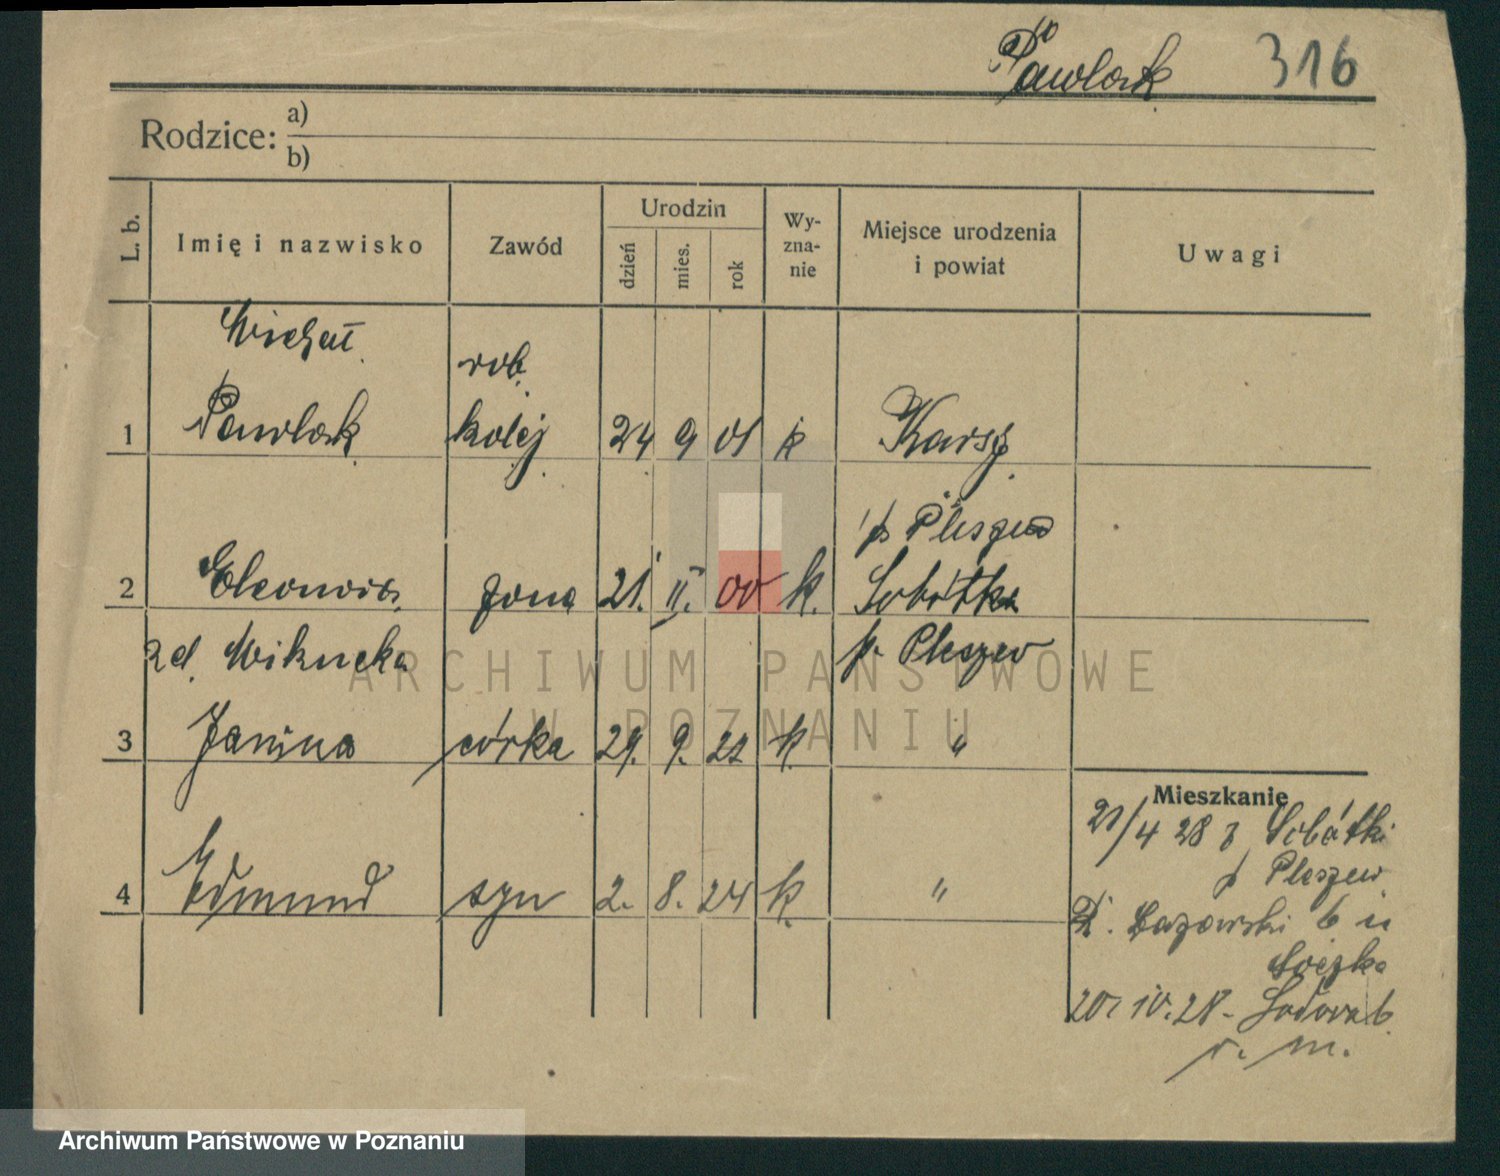 Pawlak 316
Rodzice: a)
b)
L. b. Imię i nazwisko Zawód Urodzin dzień mies. rok Wy-zna-nie Miejsce urodzenia i powiat Uwagi
Michał rob.
1 Pawlak kolej 24 9 01 k Karsy
p Pleszew
2 Eleonora żona 21. II. 00 k. Sobótka
zd. p. Pleszew
3 Janina córka 29. 9. 22 k. "
Mieszkanie
21/4 28 z Sobótki
p Pleszew
4 Edmund syn 2. 8. 24 k. "
6 u
20. IV. 28 - 6.
r. m.
ARCHIWUM PAŃSTWOWE
W POZNANIU
Archiwum Państwowe w Poznaniu